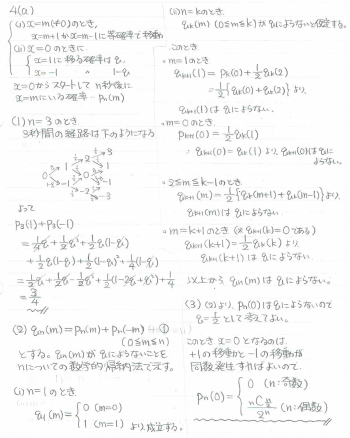 4(a)
(i) x=m(≠0)のとき,
x=m+1 か x=m-1 に等確率で移動
(ii) x=0 のときに
x=1に移る確率は q,
x=-1 〃 1-q
x=0からスタートして n秒後に
x=mにいる確率… pₙ(m)
(1) n=3のとき
3秒間の経路は下のようになる
よって
p₃(1)+p₃(-1)
=3/4
(2) qₙ(m)=pₙ(m)+pₙ(-m) ①
(0≦m≦n)
とする。qₙ(m)がqによらないことを
nについての数学的帰納法で示す。
(i) n=1のとき
q₁(m)={0 (m=0)
1 (m=1) より成立する。
(ii) n=kのとき
qₖ(m) (0≦m≦k)がqによらないと仮定する。
このとき
・m=1のとき
qₖ₊₁(1)=pₖ(0)+1/2 qₖ(2)
=1/2{qₖ(0)+qₖ(2)}より
qₖ₊₁(1)はqによらない。
・m=0のとき
pₖ₊₁(0)=1/2 qₖ(1)
∴qₖ₊₁(0)=qₖ(1)より, qₖ₊₁(0)はqに
よらない。
・2≦m≦k-1のとき
qₖ₊₁(m)=1/2{qₖ(m+1)+qₖ(m-1)}より
qₖ₊₁(m)はqによらない
・m=k+1のとき
qₖ₊₁(k+1)=1/2 qₖ(k)より
qₖ₊₁(k+1)はqによらない
以上から qₙ(m)はqによらない。
(3) (2)より, pₙ(0)はqによらないので
q=1/2として考えてよい。
このとき x=0となるのは
+1の移動と-1の移動が
同数発生すればよいので.
pₙ(0)={0 (n:奇数)
ₙC_{n/2}/2ⁿ (n:偶数)